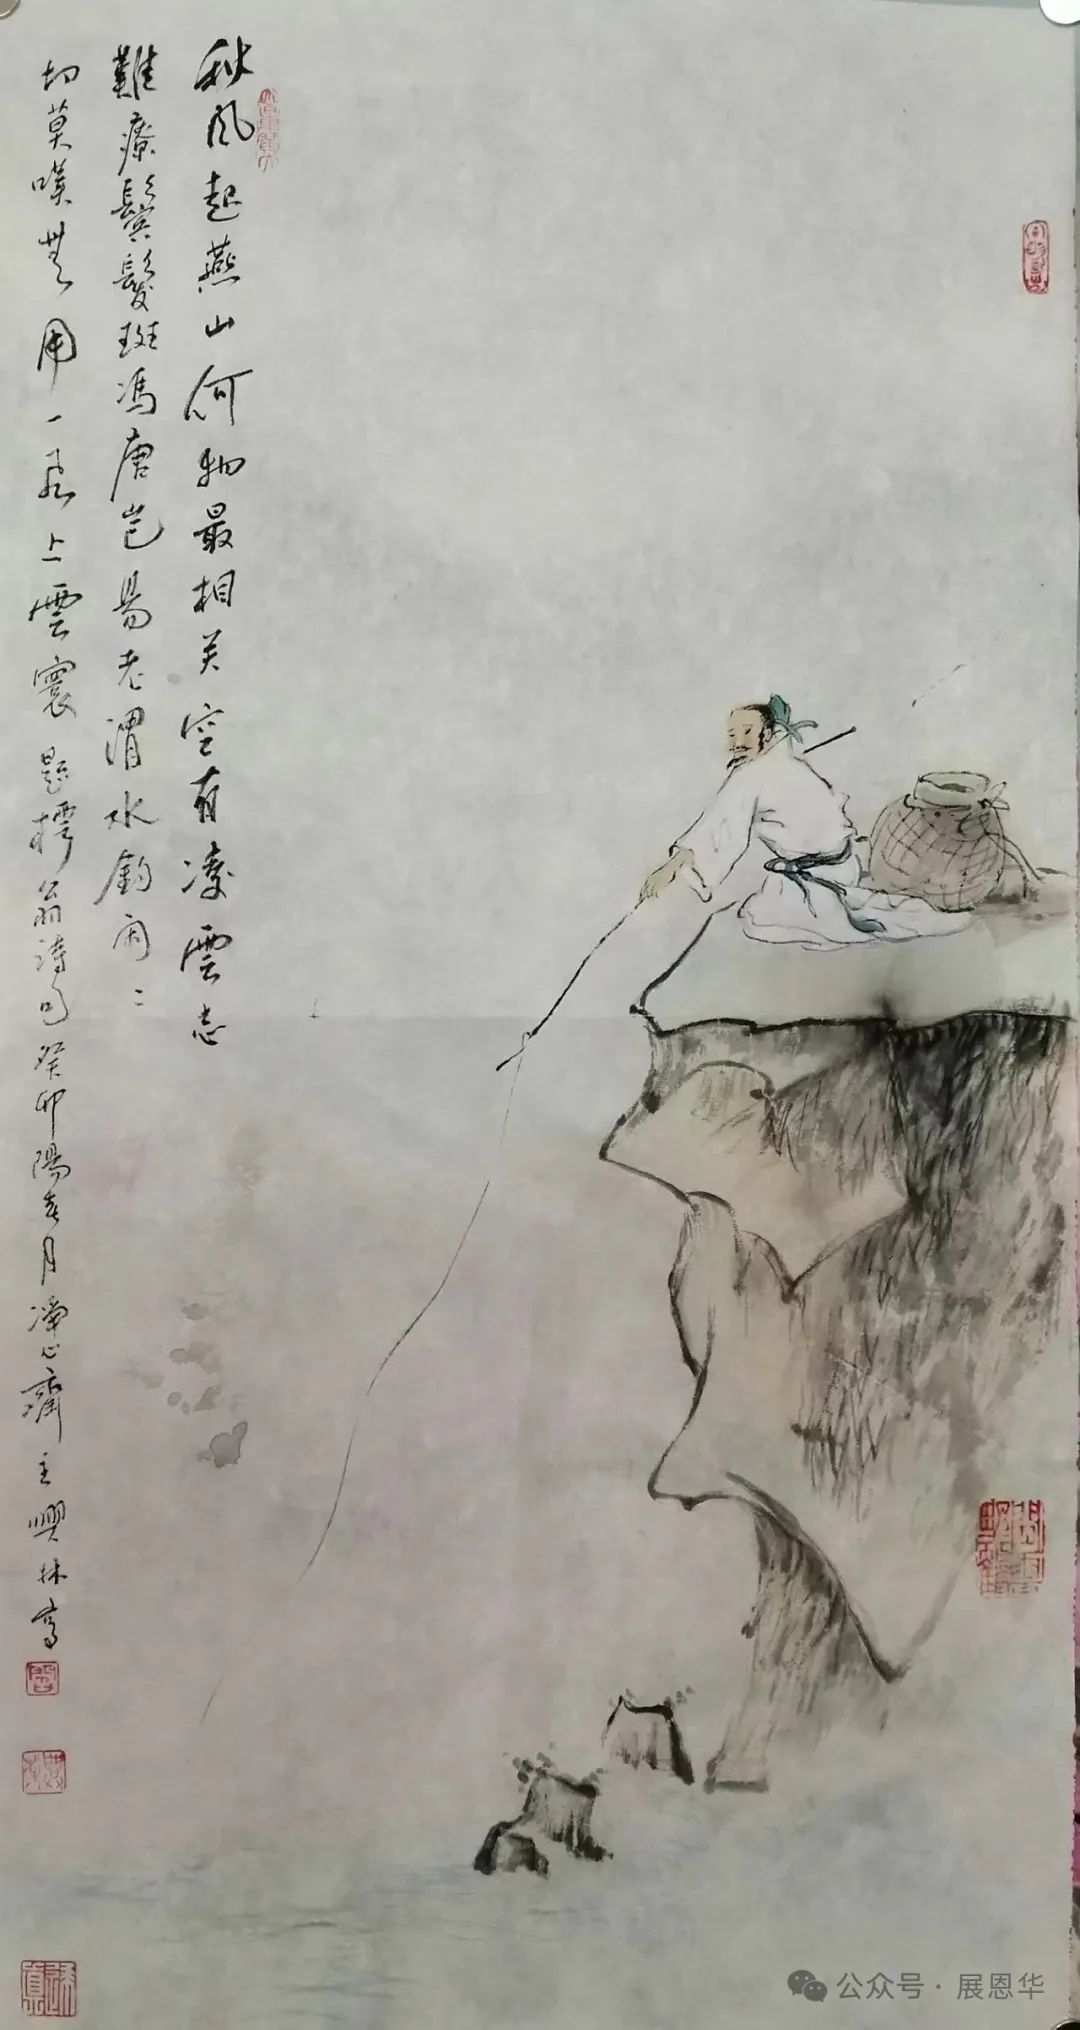 秋风起燕山何物最相关空有凌雲志
難療鬢髮斑馮唐岂易老渭水釣闲〻
切莫嘆無用一飛上雲寰題樗翁詩句癸卯陽春月凈心齋主興林寫
公众号·展恩华